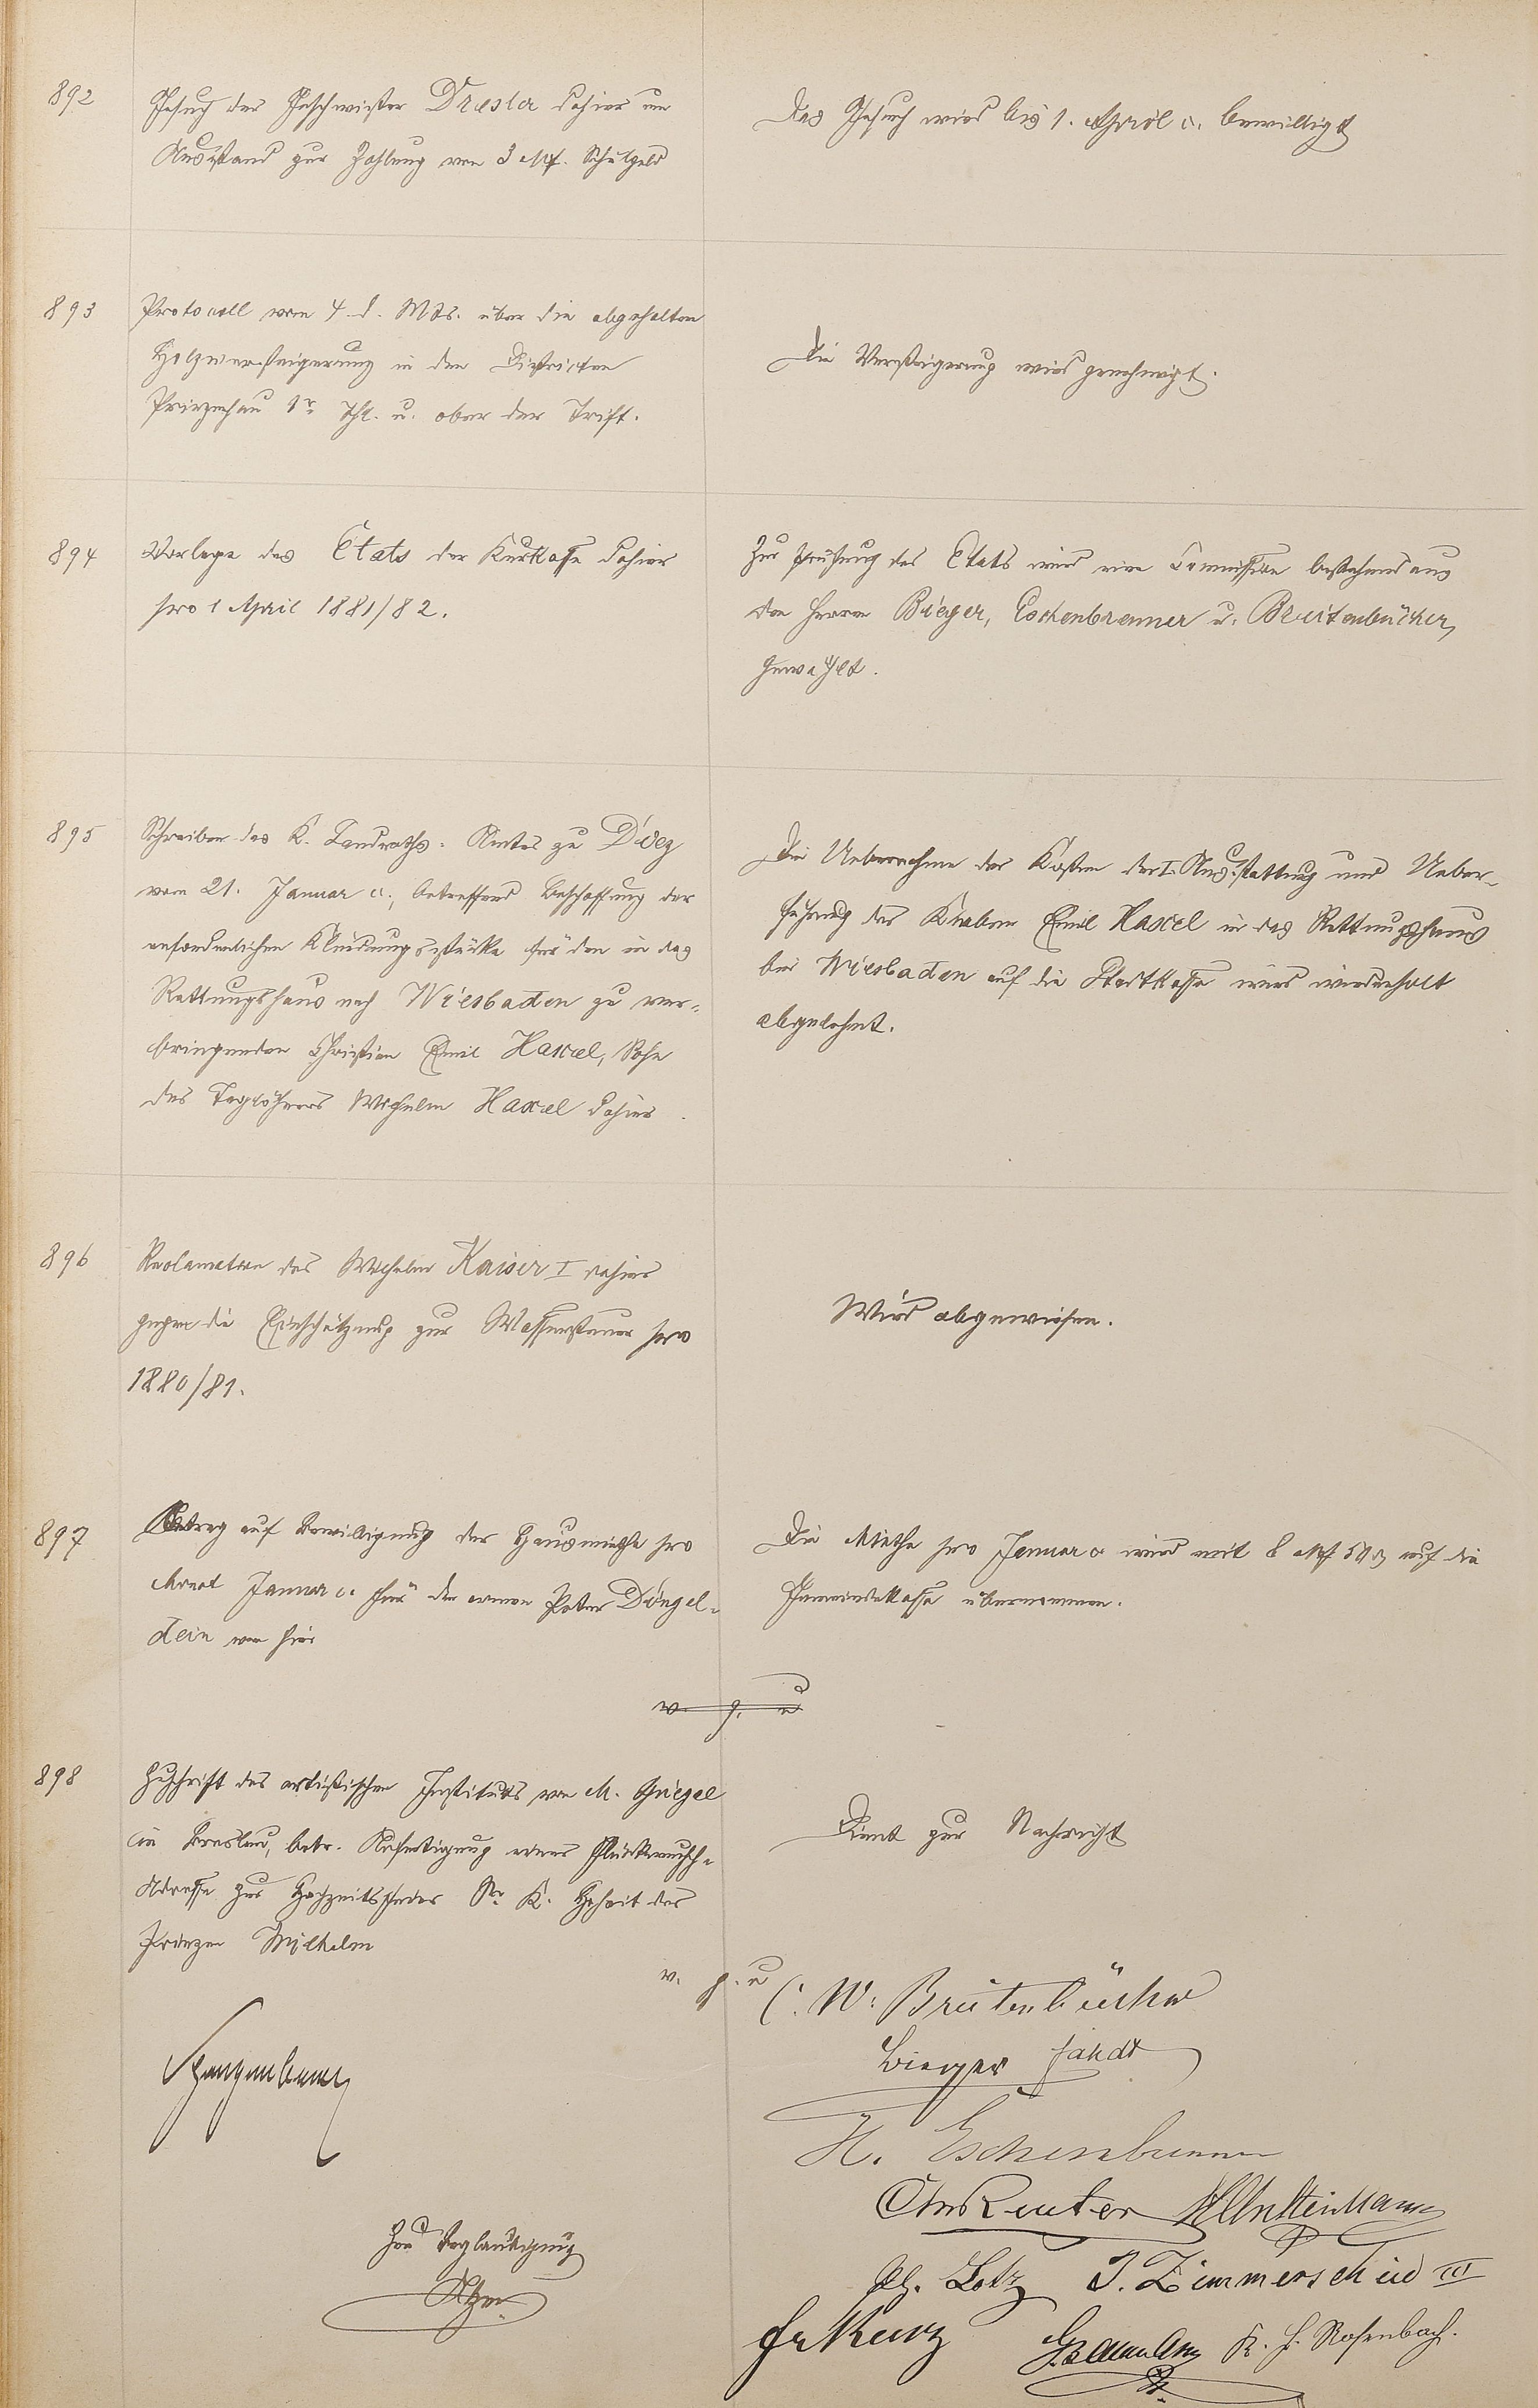 892
Gesuch der Geschwister Dresler dahier um
Ausstand zur Zahlung von 3 Mk. Schulgeld
Das Gesuch wird bis 1. April c. bewilligt
893
Protocoll vom 4. d. Mts. über die abgehalten
Holzversteigerung in den Districten
1r Thl. u. ober der Trift.
Die Versteigerung wird genehmigt.
894
Vorlage des Etats der Kurkasse dahier
pro 1 April 1881/82.
Zur Prüfung des Etats wird eine Commission bestehend aus
den Herren Bieger, Eschenbrenner u. Breitenbücher,
gewählt.
895
Schreiben des K. Landraths-Amtes zu Diez
vom 21. Januar c., betreffend Beschaffung der
erforderlichen Kleidungsstücke für den in das
Rettungshaus nach Wiesbaden zu ver-
bringenden Christian Emil Haxel, Sohn
des Taglöhners Wilhelm Haxel dahier.
Die Uebernahme der Kosten der I. Ausstattung und Ueber-
führung des Knaben Emil Haxel in das Rettungshaus
bei Wiesbaden auf die Stadtkasse wird wiederholt
abgelehnt.
896
Reclamation des Wilhelm Kaiser I dahier
gegen die Einschätzung zur Wassersteuer pro
1880/81.
Wird abgewiesen.
897
Antrag auf Bewilligung der Hausmiethe pro
Monat Januar c. für den armen Peter Düngel-
dein von hier
Die Miethe pro Januar c. wird mit 8 Mk 54 auf die
Gemeindekasse übernommen.
v. g. u
898
Zuschrift des artistischen Instituts von M. Spiegel
in Breslau, betr. Anfertigung einer Glückwunsch-
Adresse zur Hochzeitsfeier Sr. K. Hoheit des
Prinzen Wilhelm
Dient zur Nachricht
v. g. u
C. W. Breitenbücher
Spangenberg
Bieger
H. Eschenbrenner
Chr Reuter
Zur Beglaubigung
Ph. Lotz J. Zimmerschied III
Fr Kurz
K. H. Rosenbach.